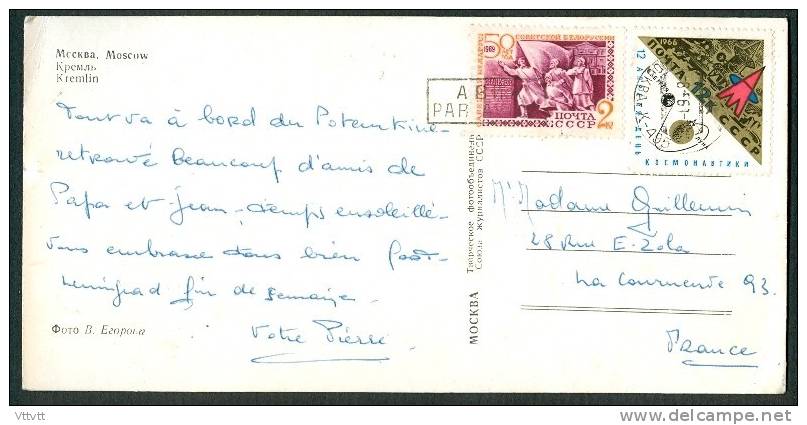 Москва. Moscow
Кремль
Kremlin
Tout va à bord du Potemkine-
retrouvé beaucoup d'amis de
Papa et Jean - temps ensoleillé-
Vous embrasse tous bien fort-
Leningrad fin de semaine
Votre Pierre
Фото В. Егорова
МОСКВА
Творческое фотообъединение
Союза журналистов СССР
PAR
50
1969
СОВЕТСКОЙ БЕЛОРУССИИ
ПОЧТА
СССР
2
1966
ПОЧТА
СССР
12 АПРЕЛЯ-ДЕНЬ
КОСМОНАВТИКИ
Mr Madame Guillemin
28 Rue E. Zola
La Courneuve 93.
France
Vttvtt
delcampe.net